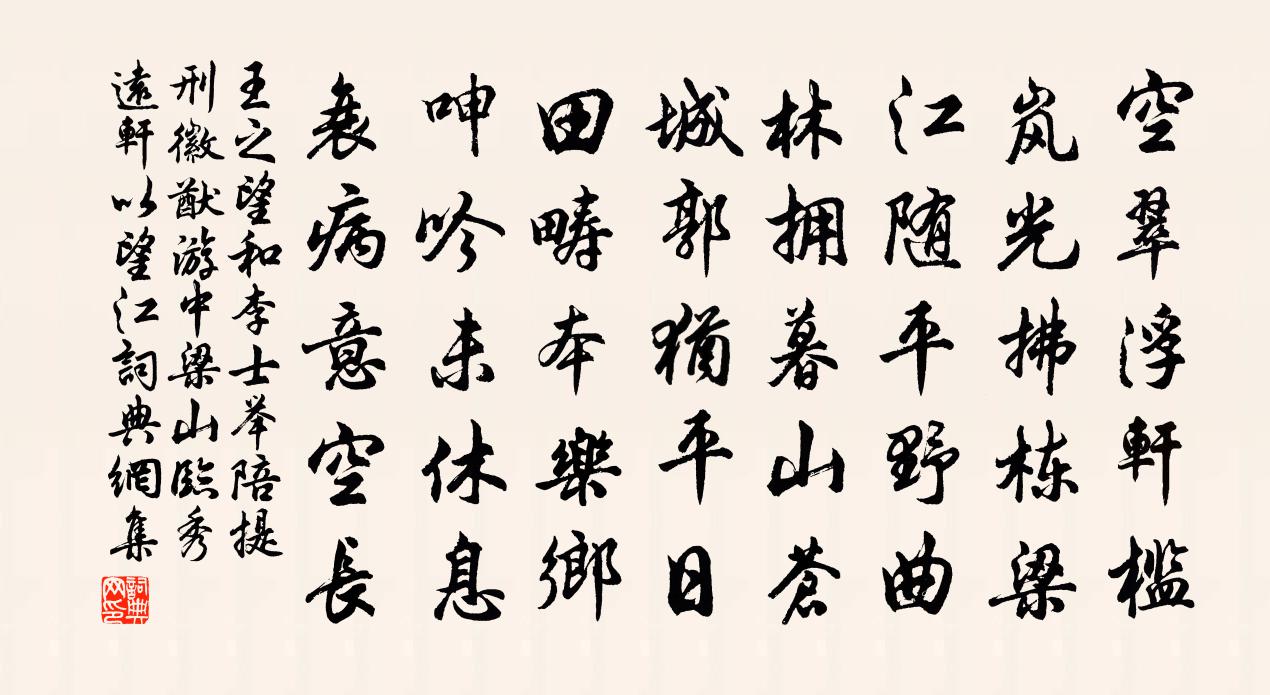 空翠浮軒檻
岚光拂栋梁
江随平野曲
林拥暮山蒼
城郭猶平日
田疇本樂鄉
呻吟未休息
衰病意空長
王之望和李士举陪提
刑徽猷游中梁山臨秀
遠軒以望江詞典網集
詞典网印